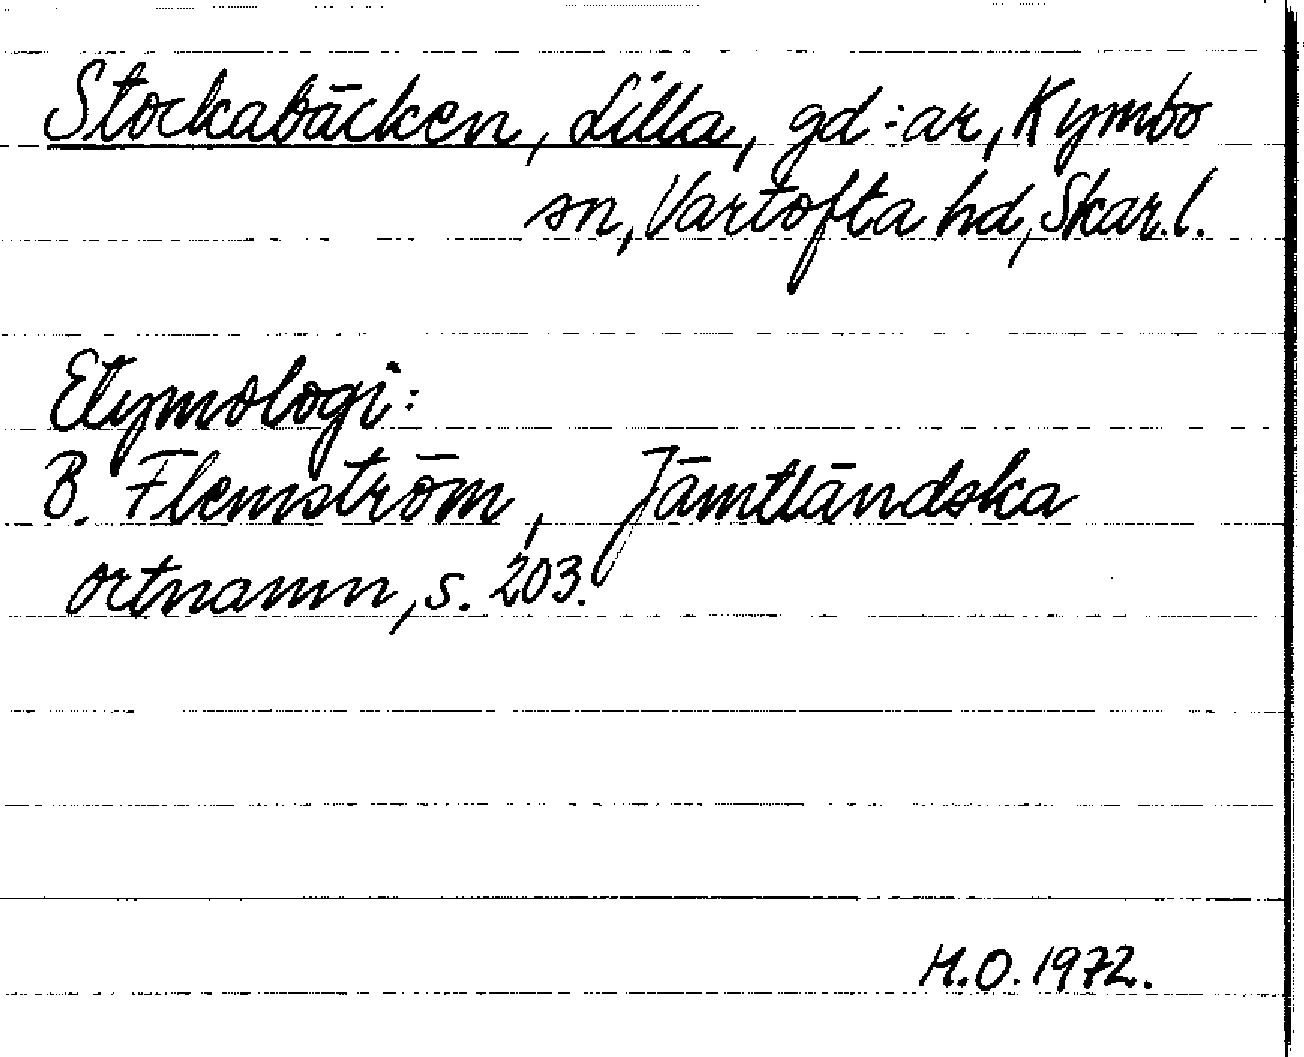 Stockabäcken, Lilla, gd:ar, Kymbo
sn, Vartofta hd, Skar.l.
Etymologi:
B. Flemström, Jämtländska
ortnamn, s. 203.
H.O. 1972.